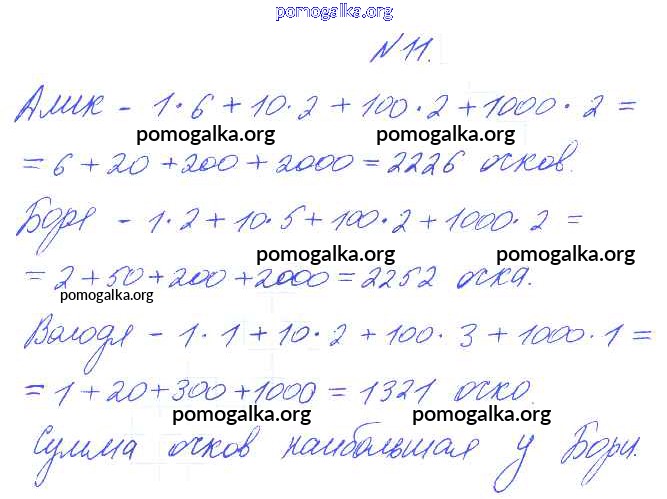 pomogalka.org
N 11.
Алик - 1·6+10·2+100·2+1000·2=
pomogalka.org pomogalka.org
=6+20+200+2000=2226 очков.
Боря - 1·2+10·5+100·2+1000·2=
pomogalka.org pomogalka.org
=2+50+200+2000=2252 очка.
pomogalka.org
Володя - 1·1+10·2+100·3+1000·1=
=1+20+300+1000=1321 очко.
pomogalka.org pomogalka.org
Сумма очков наибольшая у Бори.